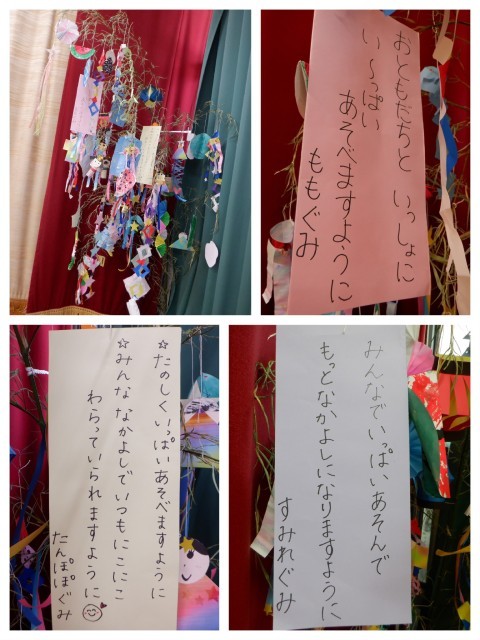 おともだちと いっしょに
い〜っぱい
あそべますように
ももぐみ
☆たのしくいっぱいあそべますように
☆みんななかよしでいつもにこにこ
わらっていられますように
たんぽぽぐみ
みんなでいっぱいあそんで
もっとなかよしになりますように
すみれぐみ